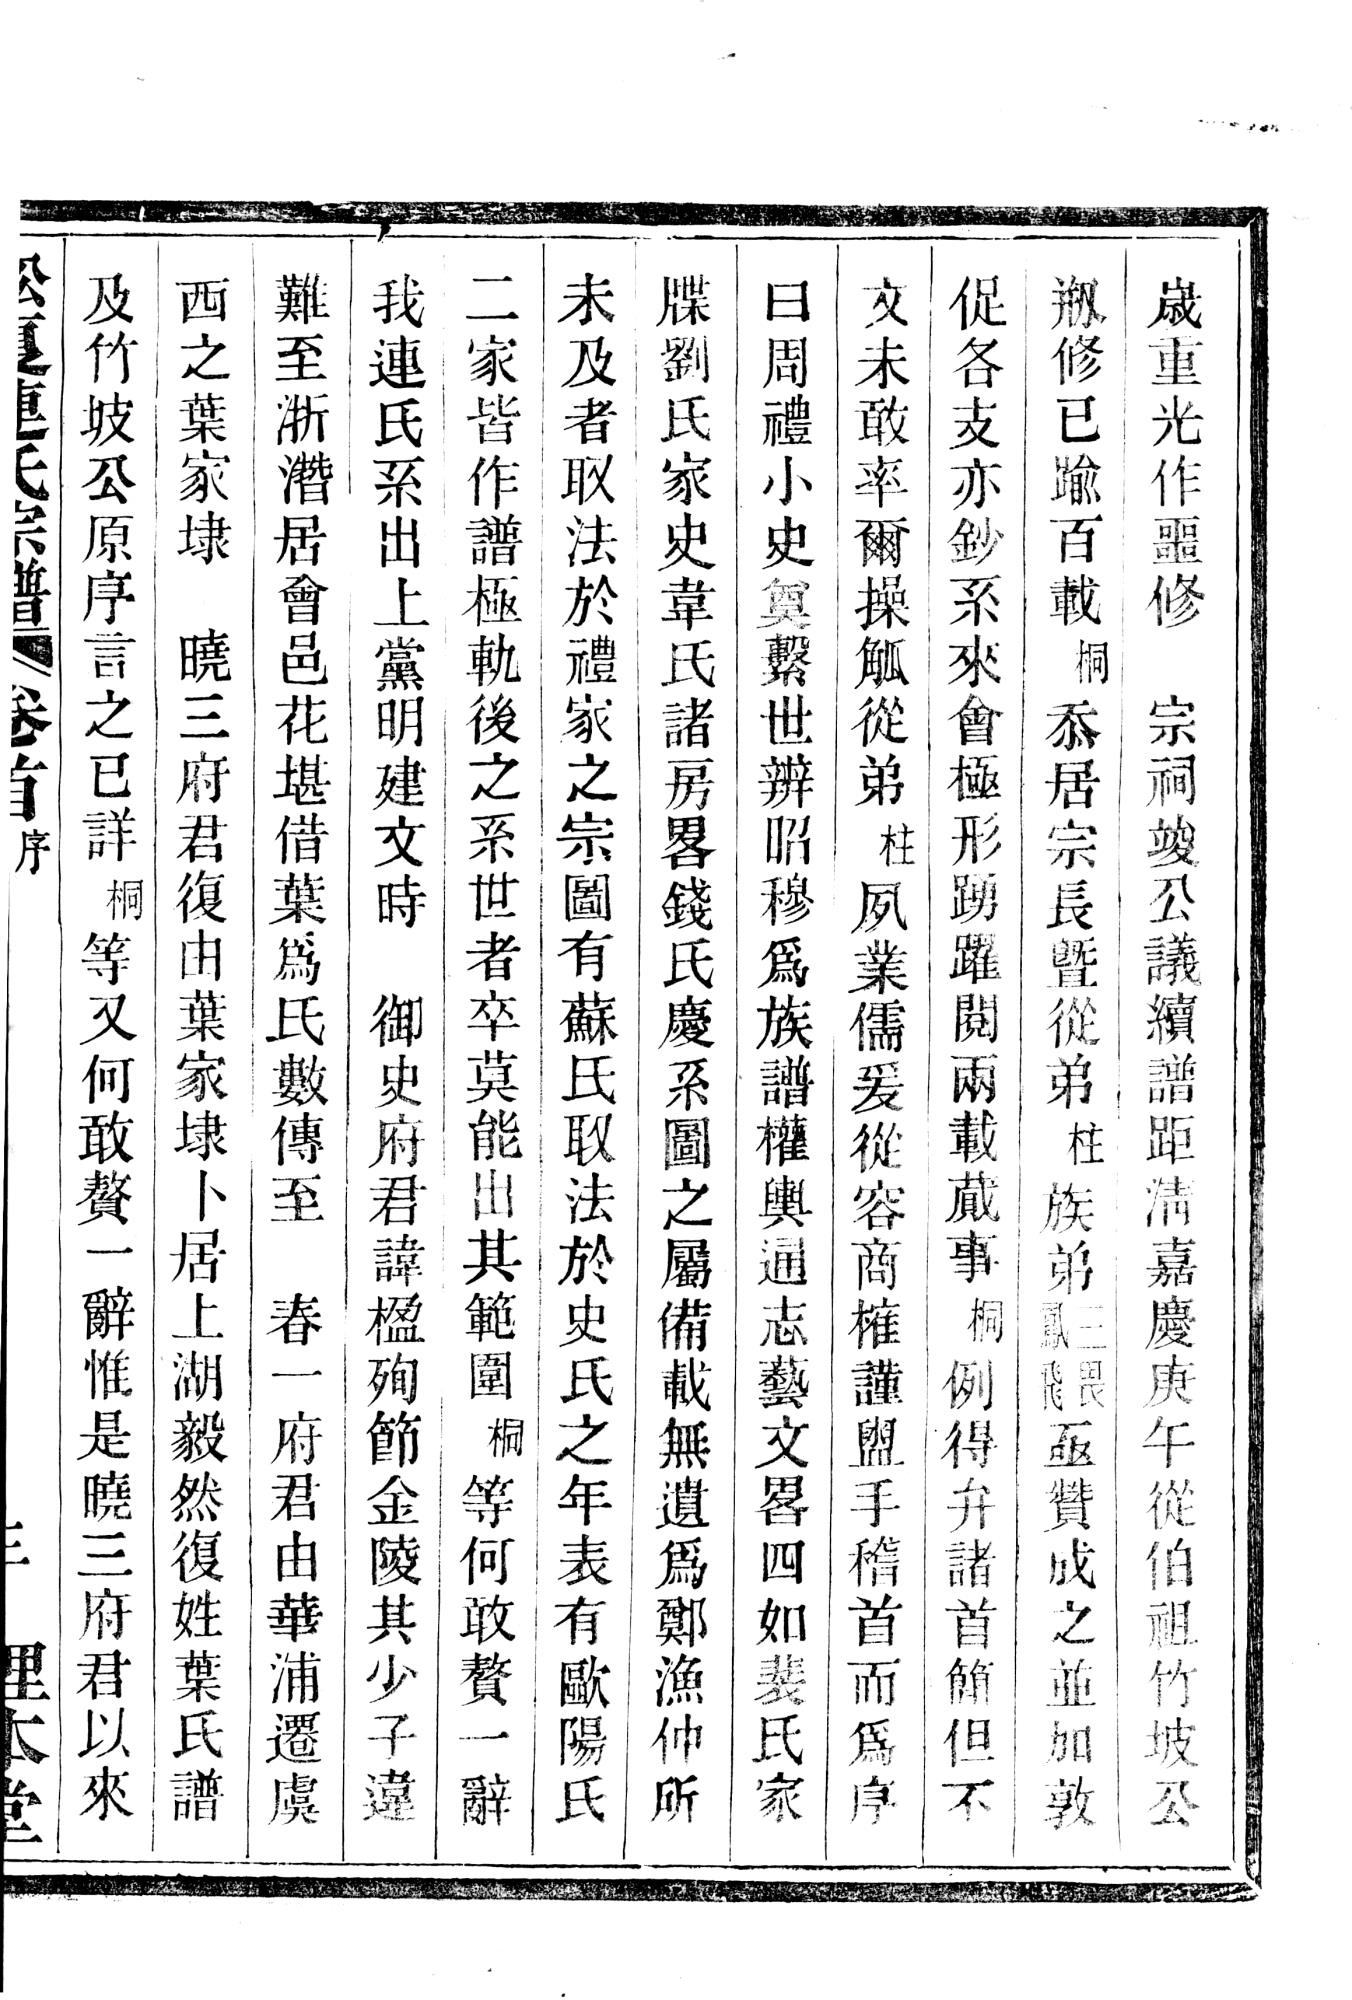 歲重光作噩修　宗祠竣公議續譜距清嘉慶庚午從伯祖竹坡公
剏修已踰百載桐忝居宗長曁從弟柱族弟三畏鳳飛亟贊成之並加敦
促各支亦鈔系來會極形踴躍閱兩載蕆事桐例得弁諸首簡但不
文未敢率爾操觚從弟柱夙業儒爰從容商榷謹盥手稽首而爲序
曰周禮小史奠繫世辨昭穆爲族譜權輿通志藝文畧四如裴氏家
牒劉氏家史韋氏諸房畧錢氏慶系圖之屬備載無遺爲鄭漁仲所
未及者取法於禮家之宗圖有蘇氏取法於史氏之年表有歐陽氏
二家皆作譜極軌後之系世者卒莫能出其範圍桐等何敢贅一辭
我連氏系出上黨明建文時　御史府君諱楹殉節金陵其少子違
難至浙潛居會邑花堪借葉爲氏數傳至　春一府君由華浦遷虞
西之葉家埭　曉三府君復由葉家埭卜居上湖毅然復姓葉氏譜
及竹坡公原序言之已詳桐等又何敢贅一辭惟是曉三府君以來
松夏連氏宗譜　卷首　序　三　理本堂